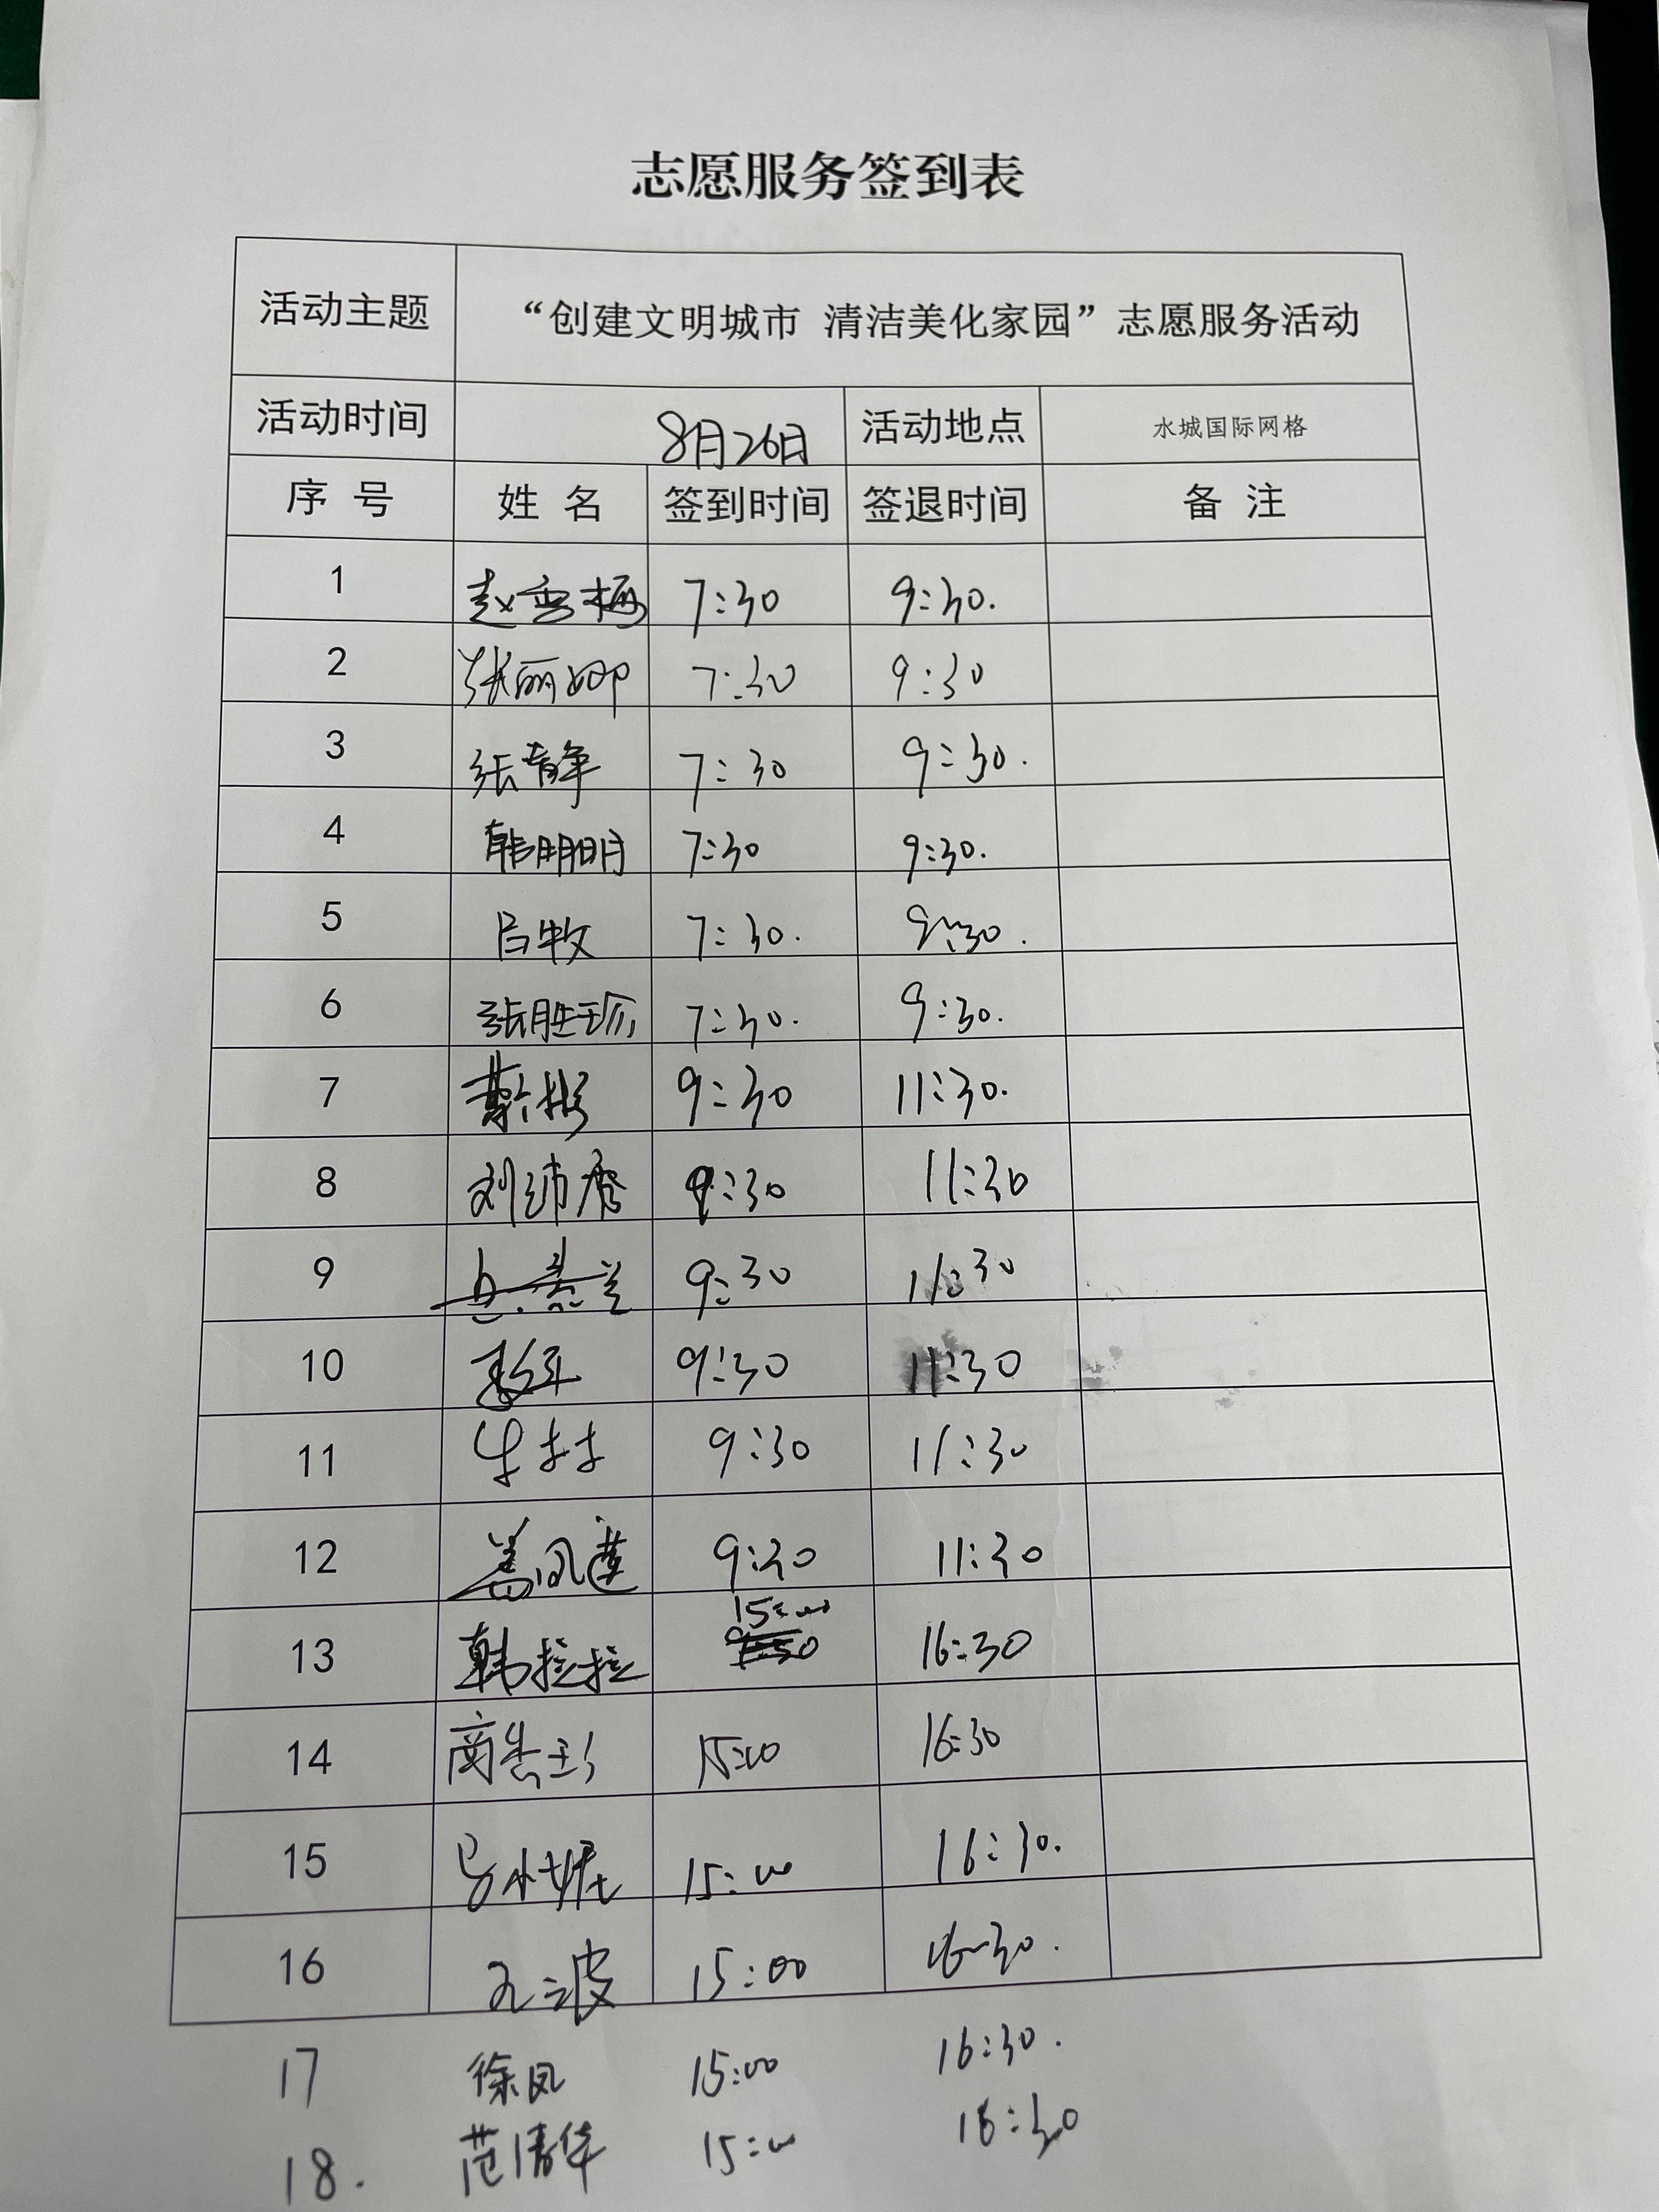 志愿服务签到表
活动主题 “创建文明城市 清洁美化家园”志愿服务活动
活动时间 8月26日 活动地点 水城国际网格
序号 姓名 签到时间 签退时间 备注
1 赵香梅 7:30 9:30.
2 张丽娜 7:30 9:30
3 张静 7:30 9:30.
4 韩明明 7:30 9:30.
5 吕牧 7:30. 9:30.
6 张胜珍 7:30. 9:30.
7 9:30 11:30.
8 9:30 11:30
9 9:30 11:30
10 9:30 11:30
11 9:30 11:30
12 9:30 11:30
13 韩拉拉 15:00 16:30
14 15:00 16:30
15 15:00 16:30.
16 15:00 16:30.
17 徐凤 15:00 16:30.
18. 范清华 15:00 16:30